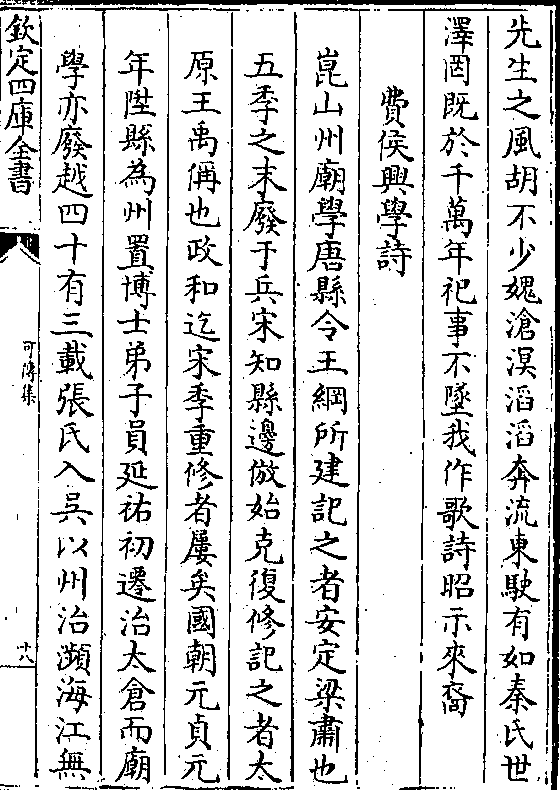 先生之風胡不少媿滄溟滔滔奔流東駛有如秦氏世
澤罔既於千萬年祀事不墜我作歌詩昭示來裔
費侯興學詩
崑山州廟學唐縣令王綱所建記之者安定梁肅也
五季之末廢于兵宋知縣邊倣始克復修記之者太
原王禹偁也政和迄宋季重修者屢矣國朝元貞元
年陞縣為州置博士弟子員延祐初遷治太倉而廟
學亦廢越四十有三載張氏入吳以州治瀕海江無
欽定四庫全書
可傳集
十八